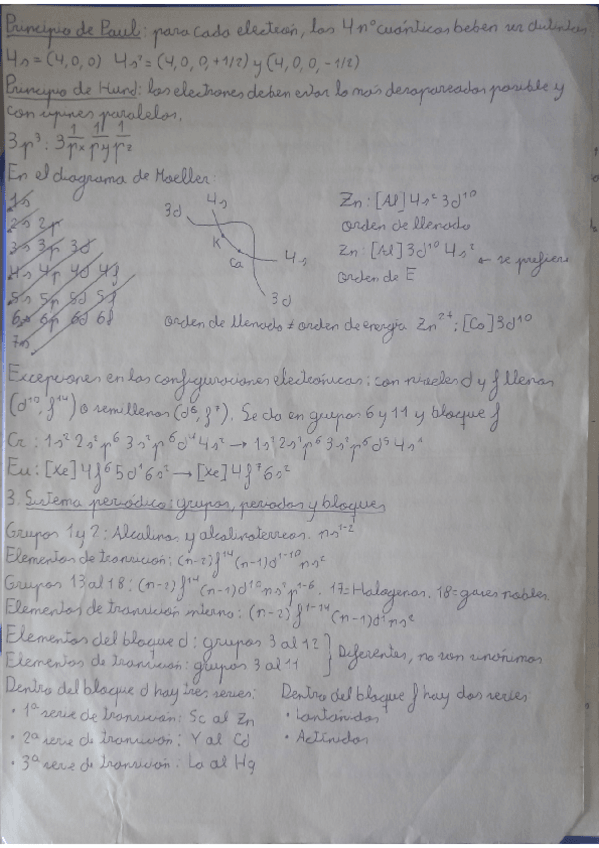 Principio de Pauli: para cada electrón, los 4 nº cuánticos beben ser distintos
4s = (4,0,0) 4s² = (4,0,0,+1/2) y (4,0,0,-1/2)
Principio de Hund: los electrones deben estar lo más desapareados posible y
con espines paralelos.
3p³: 3 1/px 1/py 1/pz
En el diagrama de Moeller:
1s
2s 2p
3s 3p 3d
4s 4p 4d 4f
5s 5p 5d 5f
6s 6p 6d 6f
7s
4s
3d
K
Ca
4s
3d
Zn: [Ar] 4s² 3d¹⁰
orden de llenado
Zn: [Ar] 3d¹⁰ 4s² ← se prefiere
orden de E
orden de llenado ≠ orden de energía Zn²⁺: [Ca] 3d¹⁰
Excepciones en las configuraciones electrónicas: con niveles d y f llenos
(d¹⁰, f¹⁴) o semillenos (d⁵, f⁷). Se da en grupos 6 y 11 y bloque f
Cr: 1s² 2s² p⁶ 3s² p⁶ d⁴ 4s² → 1s² 2s² p⁶ 3s² p⁶ d⁵ 4s¹
Eu: [Xe] 4f⁶ 5d¹ 6s² → [Xe] 4f⁷ 6s²
3. Sistema periódico: grupos, periodos y bloques
Grupos 1 y 2: Alcalinos y alcalinoterreos. ns¹⁻²
Elementos de transición: (n-2)f¹⁴ (n-1)d¹⁻¹⁰ ns²
Grupos 13 al 18: (n-2)f¹⁴ (n-1)d¹⁰ ns² p¹⁻⁶. 17=Halogenos. 18=gases nobles.
Elementos de transición interna: (n-2)f¹⁻¹⁴ (n-1)d¹ ns²
Elementos del bloque d: grupos 3 al 12
Elementos de transición: grupos 3 al 11
Diferentes, no son sinónimos
Dentro del bloque d hay tres series:
• 1ª serie de transición: Sc al Zn
• 2ª serie de transición: Y al Cd
• 3ª serie de transición: La al Hg
Dentro del bloque f hay dos series
• Lantanidos
• Actinidos